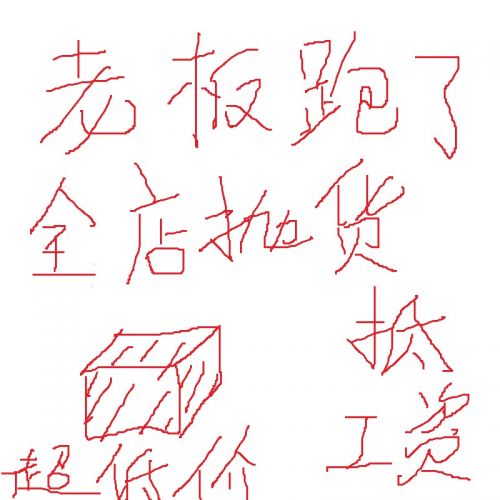 老板跑了
全店抛货
抵
工资
超低价